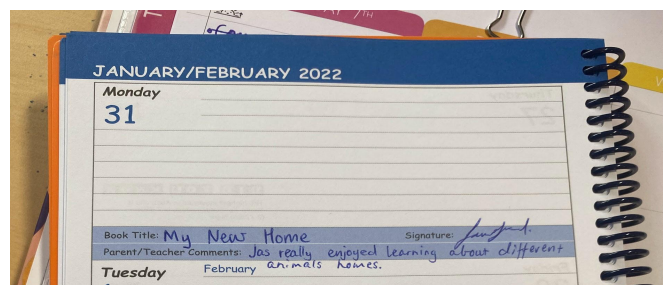 JANUARY/FEBRUARY 2022
Monday
31
Thursday
27
Book Title: My New Home Signature:
Parent/Teacher Comments: Jas really enjoyed learning about different
animals homes.
Tuesday February